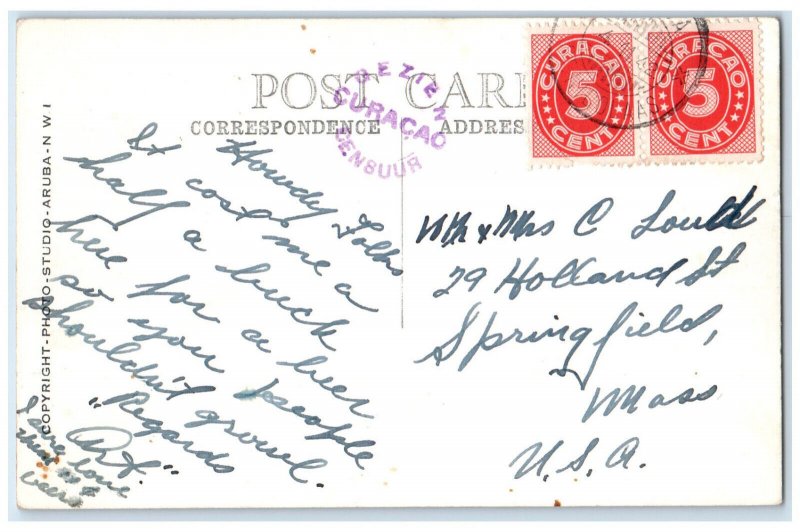 POST CARD
CORRESPONDENCE
ADDRESS
GEZIEN
CURAÇAO
CENSUUR
CURAÇAO
5
CENT
CURAÇAO
5
CENT
COPYRIGHT-PHOTO-STUDIO-ARUBA-N W I
Howdy Folks
It costs me a
half a buck
here for a beer
so you people
shouldn't growl.
"Regards
Art."
I sure love
them as a
Mr & Mrs C
29 Holland St
Springfield,
Mass
U.S.A.